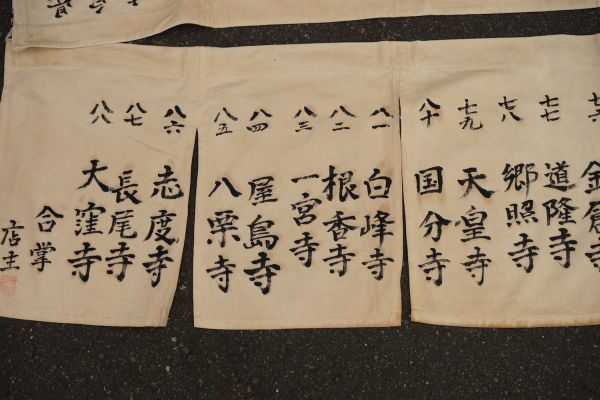 七六 金倉寺
七七 道隆寺
七八 郷照寺
七九 天皇寺
八十 国分寺
八一 白峰寺
八二 根香寺
八三 一宮寺
八四 屋島寺
八五 八栗寺
八六 志度寺
八七 長尾寺
八八 大窪寺
合掌
店主